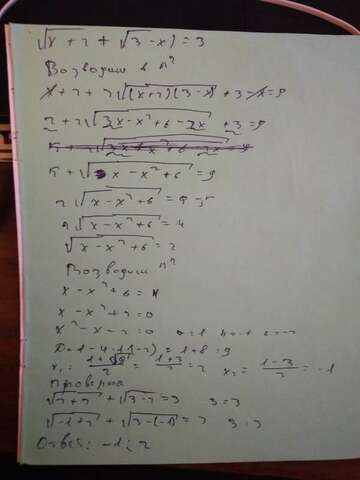 √(x+2) + √(3-x) = 3
Возводим в n²
x+2+2√((x+2)(3-x)) +3-x=9
2+2√(3x-x²+6-2x) +3=9
5+√(x-x²+6)=9
2√(x-x²+6)=9-5
2√(x-x²+6)=4
√(x-x²+6)=2
Возводим n²
x-x²+6=4
x-x²+2=0
x²-x-2=0 a=1 b=-1 c=-2
D=1-4·1(-2)=1+8=9
x₁=(1+√9)/2=(1+3)/2=2 x₂=(1-3)/2=-1
Проверка
√(2+2)+√(3-2)=3 3=3
√(-1+2)+√(3-(-1))=3 3=3
Ответ: -1; 2